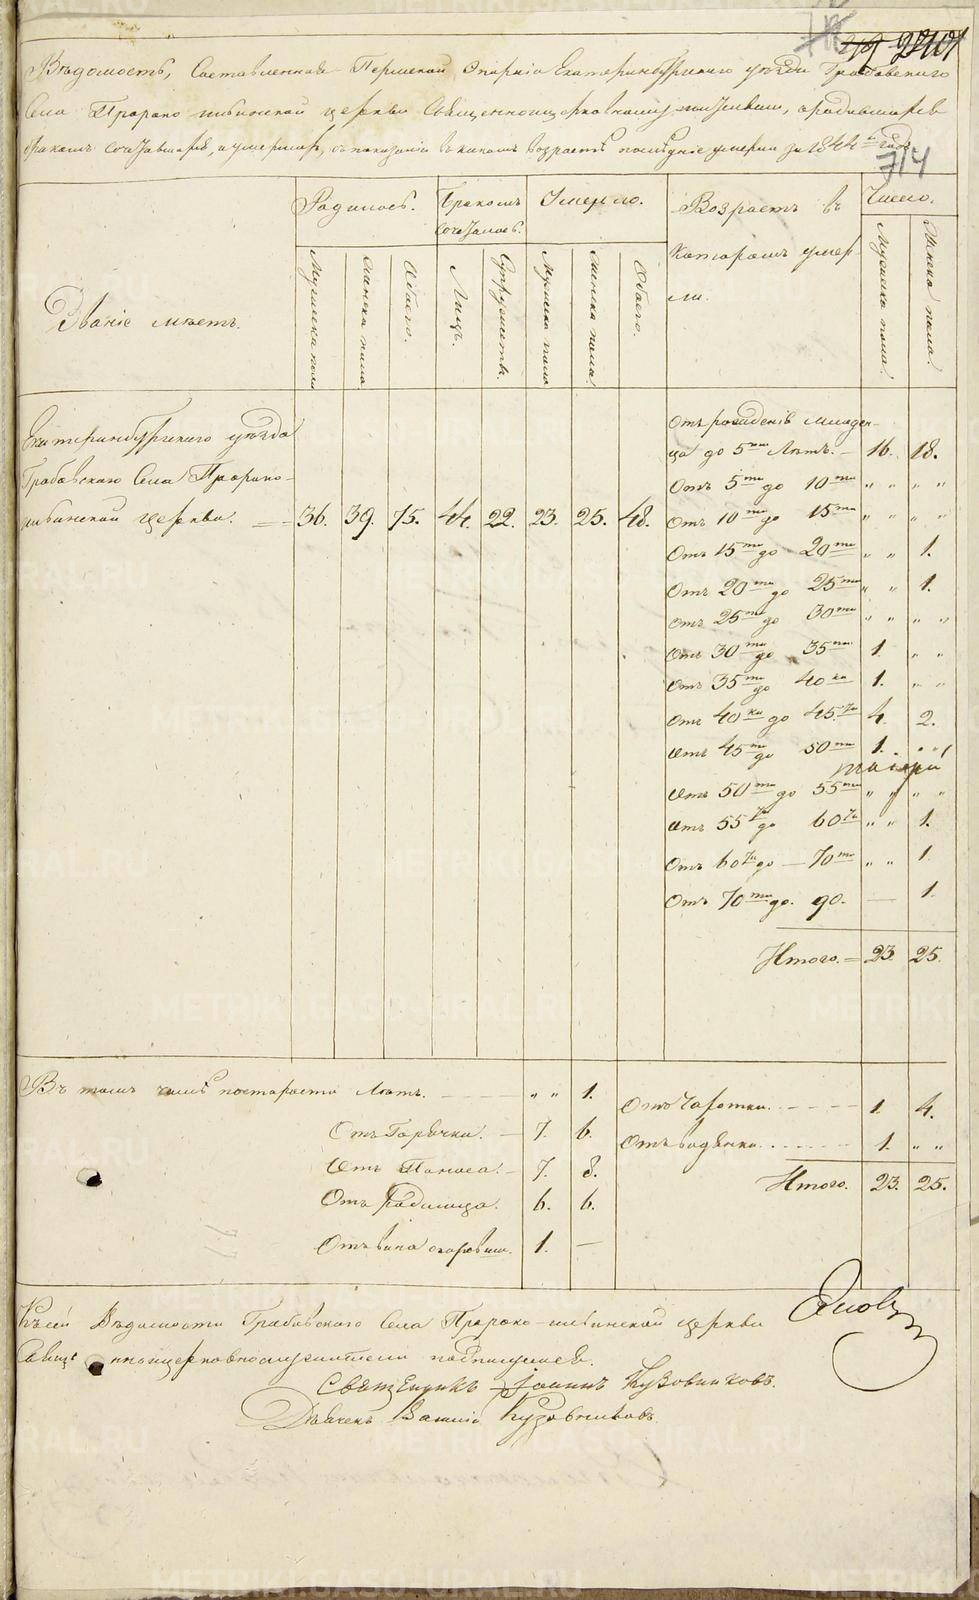 219 240
Вѣдомость, Составленная Пермской Епархіи Екатеринбургскаго уѣзда Грабовского
Села Пророко-ильинской церкви Священноцерковнослужителями, о родившихся
бракомъ сочетавшихся, и умершихъ, съ показаніемъ въ какомъ возрастѣ послѣдніе умерли за 1844й годъ
714
Званіе мѣстъ.
Родилось.
Бракомъ сочеталось.
Умерло.
Возрастъ въ которомъ умерли.
Число.
Мужеска пола
Женска пола
Обоего.
Лицъ.
Супружествъ.
Мужеска пола
Женска пола
Обоего.
Мужеска пола.
Женска пола.
Екатеринбургскаго уѣзда
Грабовскаго Села Пророко-
ильинской церкви. 36. 39. 75. 44. 22. 23. 25. 48.
Отъ рожденія младен-
ца до 5ти Лѣтъ. 16. 18.
Отъ 5ти до 10ти „ „ „ „
Отъ 10ти до 15ти „ „ „ „
Отъ 15ти до 20ти „ „ 1.
Отъ 20ти до 25ти „ „ 1.
Отъ 25ти до 30ти „ „ „ „
Отъ 30ти до 35ти 1. „ „
Отъ 35ти до 40ка 1. „ „
Отъ 40ка до 45ти 4. 2.
Отъ 45ти до 50ти 1. „ „
Отъ 50ти до 55ти „ „ „ „
Отъ 55ти до 60ти „ „ 1.
Отъ 60ти до 70ти „ „ 1.
Отъ 70ти до 90. — 1.
Итого. 23. 25.
Въ томъ числѣ постарости Лѣтъ. „ „ 1.
Отъ Горячки. 7. 6.
Отъ Поноса. 7. 8.
Отъ Родимца. 6. 6.
Отъ вина 1. —
Отъ Чахотки. 1. 4.
Отъ водянки. 1. „ „
Итого. 23. 25.
Къ сей Вѣдомости Грабовскаго Села Пророко-ильинской церкви
Священноцерковнослужители подписуемся.
Священникъ Іоаннъ Кузовниковъ.
Дьячекъ Василій Кузовниковъ.
METRIKI.GASO-URAL.RU